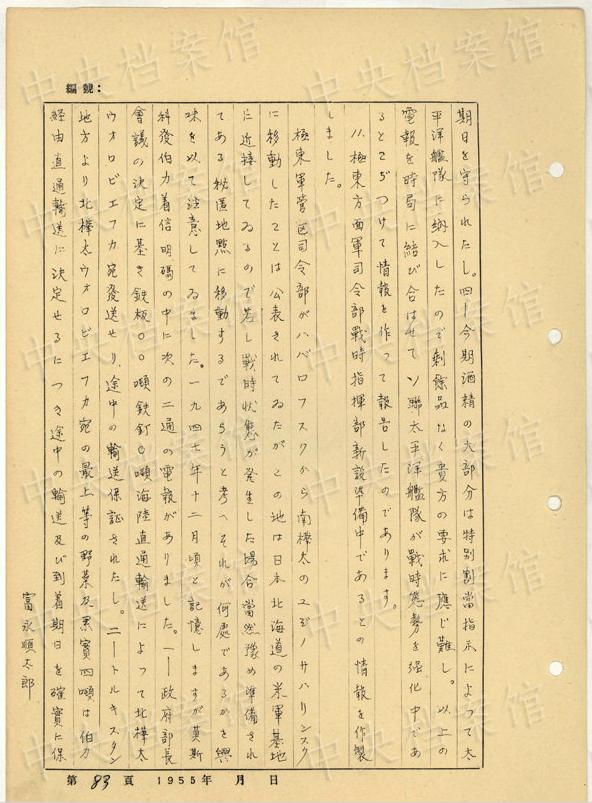 編號：
期日を守られたし。四ー今期酒精の大部分は特別割当指示によって太
平洋艦隊に納入したので剩餘品なく貴方の要求に應じ難し。以上の
電報を時局に結び合はせてソ聯太平洋艦隊が戰時態勢を强化中であ
るとこぢつけて情報を作って報告したのであります。
11.極東方面軍司令部戰時指揮部新設準備中であるとの情報を作製
しました。
極東軍管区司令部がハバロフスクから南樺太のユジノサハリンスク
に移動したことは公表されてゐたがこの地は日本北海道の米軍基地
に近接してゐるので若し戰時状態が発生した場合當然豫め準備され
てある秘匿地點に移動するであらうと考へそれが何處であるかを興
味を以て注意してゐました。一九四七年十二月頃と記憶しますが莫斯
科發伯力着信明碼の中に次の二通の電報がありました。一ー政府部長
會議の決定に基き鉄板〇〇噸鉄釘〇噸海陸直通輸送によって北樺太
ウオロビエフカ宛發送せり、途中の輸送保証されたし。二ートルキスタン
地方より北樺太ウオロビエフカ宛の最上等の野菜及果實四噸は伯力
経由直通輸送に決定せるにつき途中の輸送及び到着期日を確實に保
富永順太郎
第 83 頁 1955年 月 日
中央档案馆